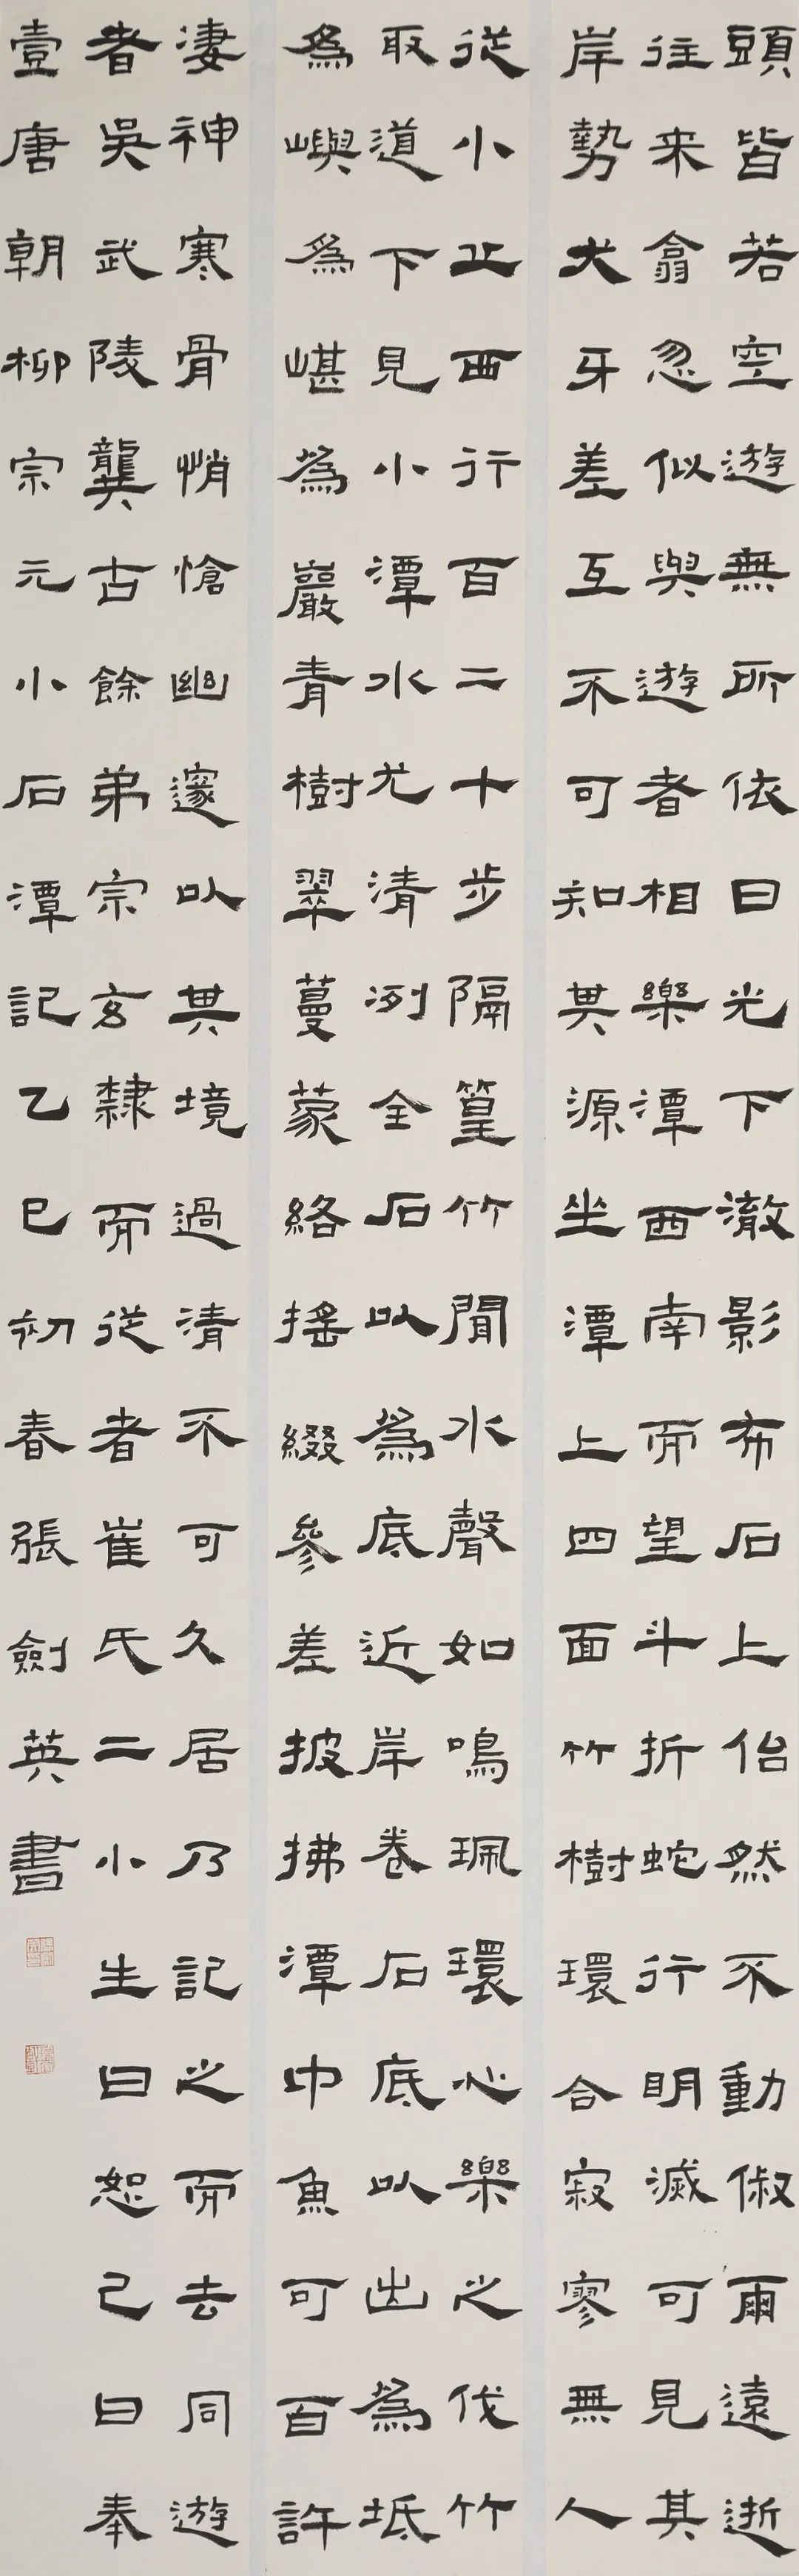 頭皆若空遊無所依日光下澈影布石上佁然不動俶爾遠逝
往来翕忽似與遊者相樂潭西南而望斗折蛇行明滅可見其
岸勢犬牙差互不可知其源坐潭上四面竹樹環合寂寥無人
從小丘西行百二十步隔篁竹聞水聲如鳴珮環心樂之伐竹
取道下見小潭水尤清冽全石以為底近岸卷石底以出為坻
為嶼為嵁為巖青樹翠蔓蒙絡搖綴參差披拂潭中魚可百許
凄神寒骨悄愴幽邃以其境過清不可久居乃記之而去同遊
者吳武陵龔古餘弟宗玄隸而從者崔氏二小生曰恕己曰奉
壹唐朝柳宗元小石潭記乙巳初春張劍英書